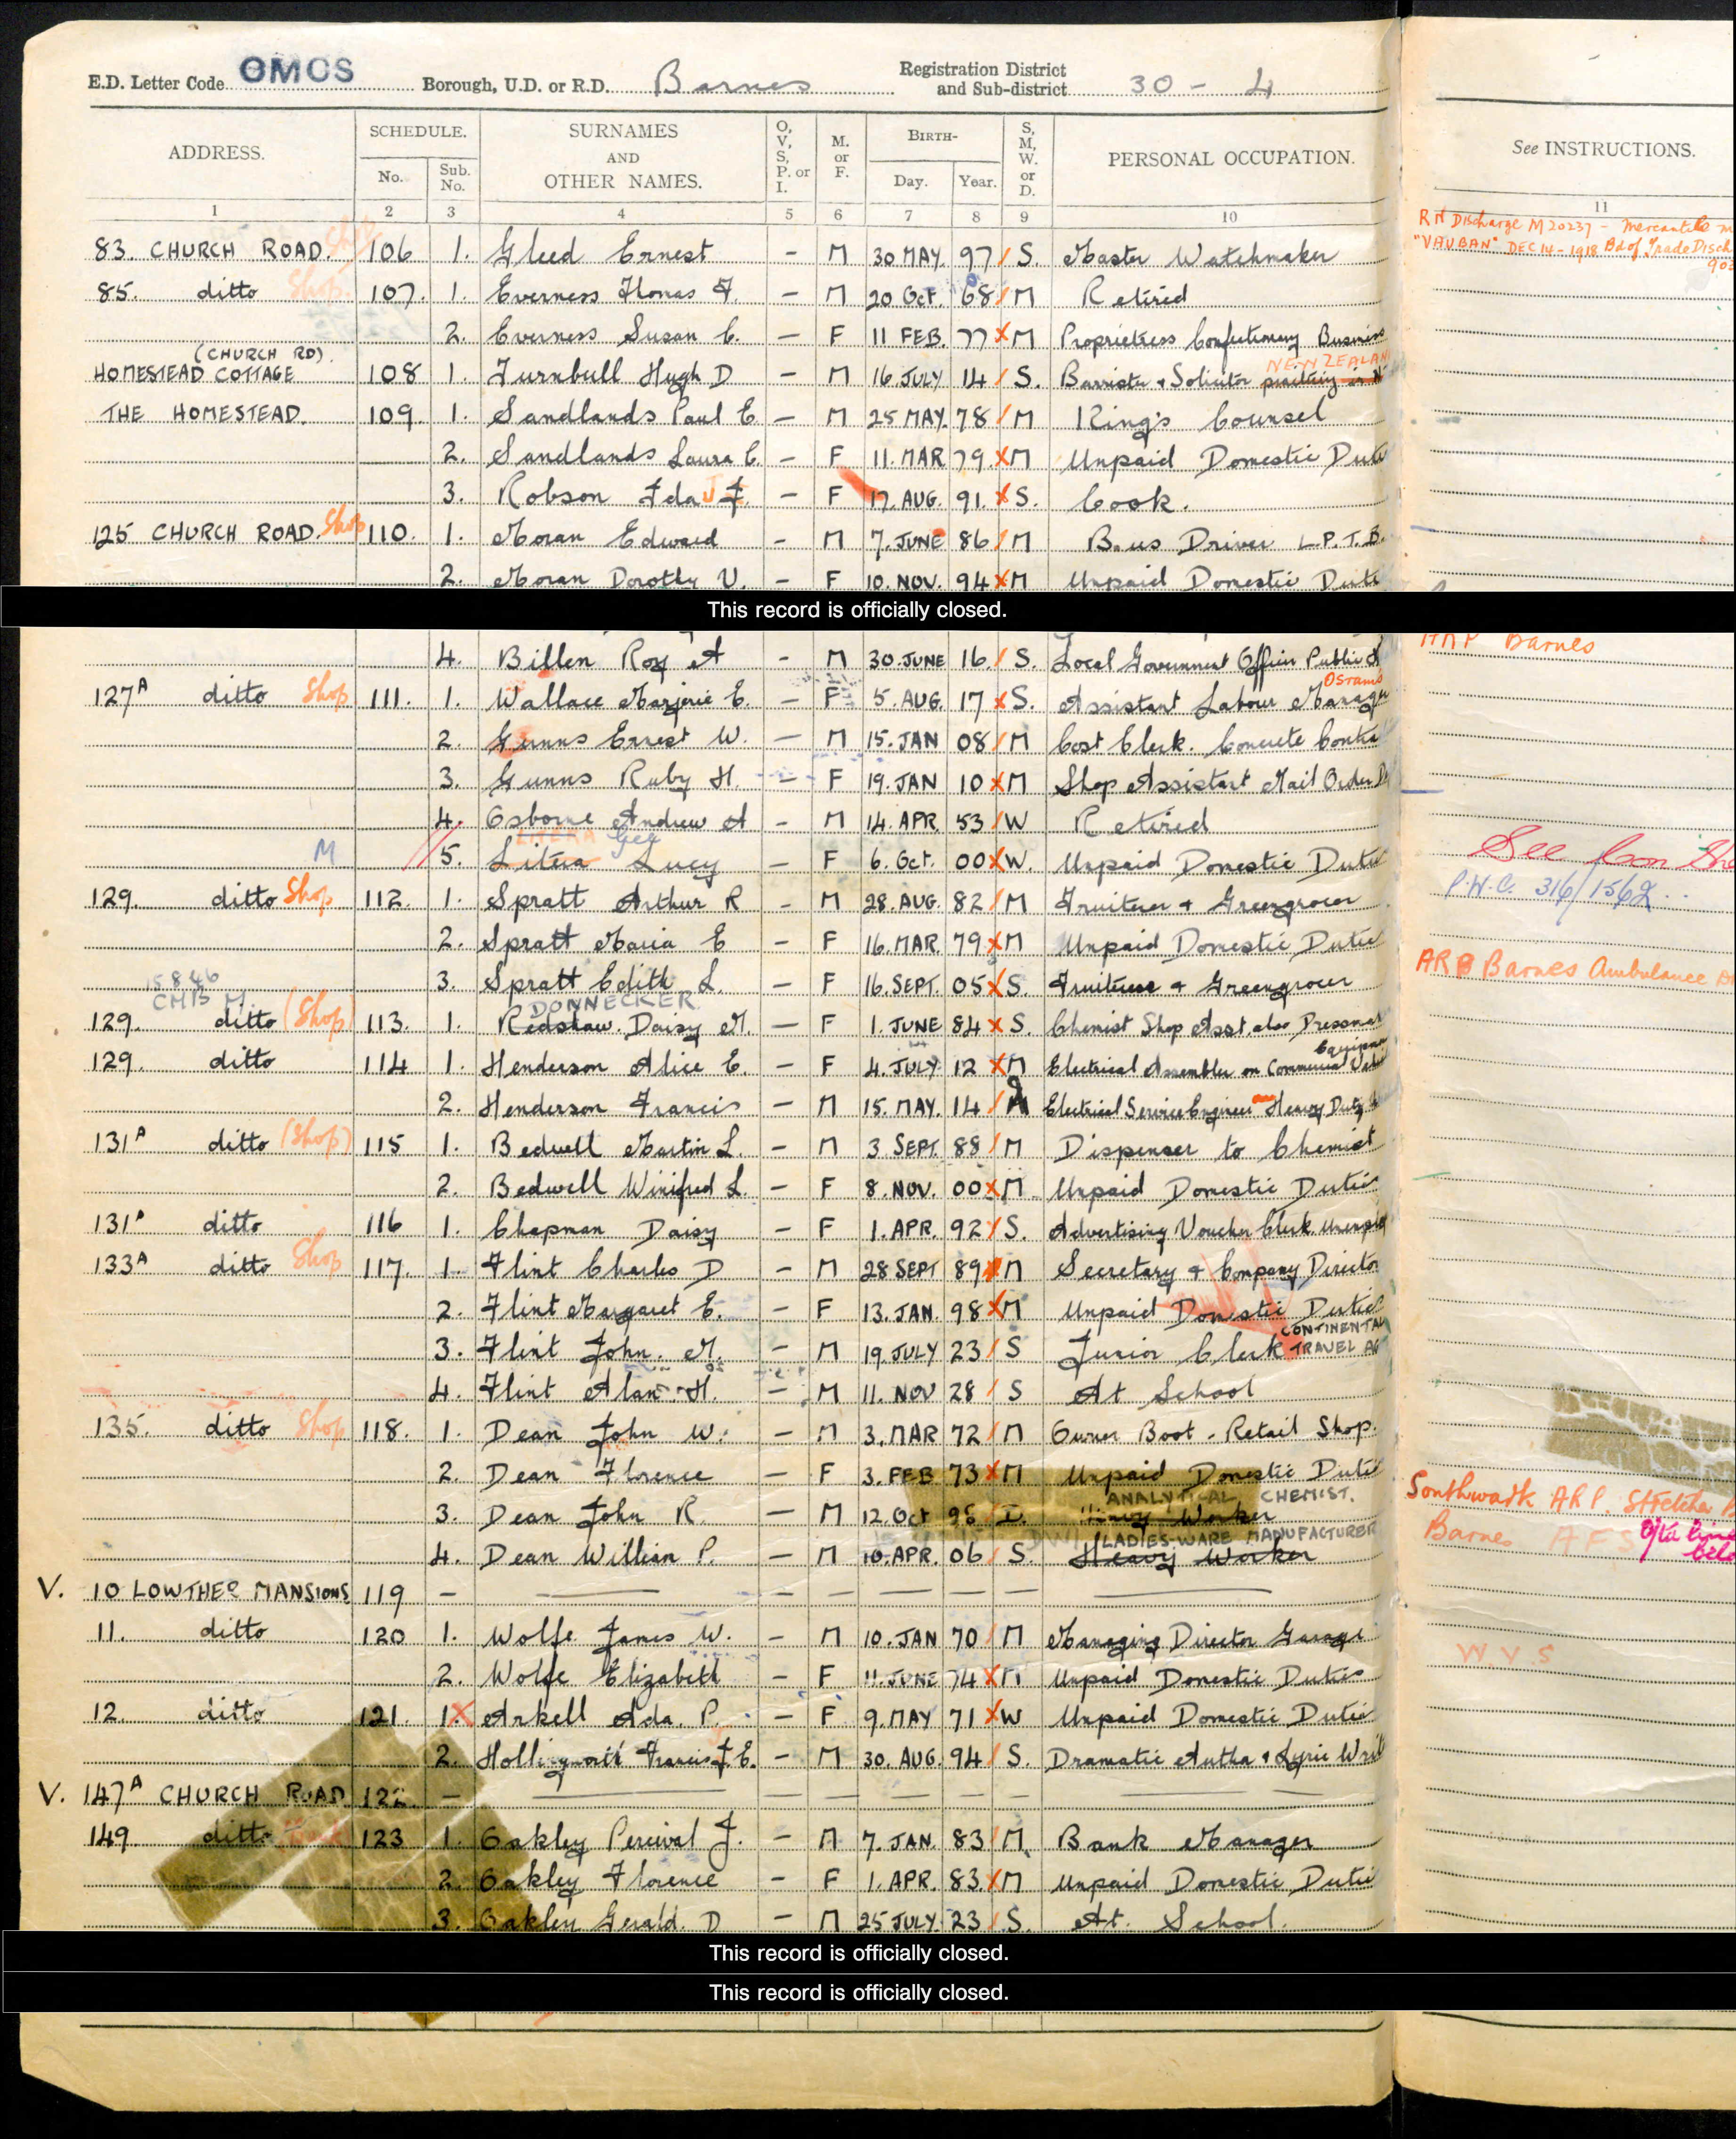 E.D. Letter Code OMCS Borough, U.D. or R.D. Barnes Registration District and Sub-district 30 - 4
ADDRESS. SCHEDULE. No. Sub. No. SURNAMES AND OTHER NAMES. O, V, S, P. or I. M. or F. BIRTH- Day. Year. S, M, W. or D. PERSONAL OCCUPATION. See INSTRUCTIONS.
1 2 3 4 5 6 7 8 9 10 11
RN Discharge M 20237 - Mercantile
"VAUBAN" DEC 14-1918 Bd of Trade Disch
83. CHURCH ROAD. Shop 106 1. Gleed Ernest - M 30 MAY. 97 / S. Master Watchmaker
85. ditto Shop. 107. 1. Everness Thomas F. - M 20 Oct. 68 / M Retired
2. Everness Susan C. - F 11 FEB. 77 X M Proprietress Confectionery Business
(CHURCH RD). NEW ZEALAN
HOMESTEAD COTTAGE 108 1. Turnbull Hugh D - M 16 JULY 14 / S. Barrister & Solicitor practising in N
THE HOMESTEAD. 109. 1. Sandlands Paul E. - M 25 MAY. 78 / M King's Counsel
2. Sandlands Laura C. - F 11. MAR 79. X M Unpaid Domestic Duti
3. Robson Ida J F. - F 17. AUG. 91. X S. Cook.
125 CHURCH ROAD. Shop 110. 1. Moran Edward - M 7. JUNE 86 / M Bus Driver L.P.T.B.
2. Moran Dorothy V. - F 10. NOV. 94 X M Unpaid Domestic Duti
This record is officially closed.
4. Billen Roy A - M 30. JUNE 16. / S. Local Government Officer Public ARP Barnes
127A ditto Shop 111. 1. Wallace Marjorie E. - F 5. AUG. 17 X S. Assistant Labour Manager Osrams
2. Gunns Ernest W. - M 15. JAN 08 / M Cost Clerk. Concrete Contra
3. Gunns Ruby H. - F 19. JAN 10 X M Shop Assistant Mail Order D
4. Osborne Andrew A - M 14. APR 53 / W Retired
M // 5. Litera Lucy - F 6. Oct. 00 X W. Unpaid Domestic Dutie See Con She
P.H.C. 316/1562
129. ditto Shop 112. 1. Spratt Arthur R - M 28. AUG. 82 / M Fruiterer & Greengrocer
2. Spratt Maria E - F 16. MAR. 79 X M Unpaid Domestic Dutie
3. Spratt Edith L. - F 16. SEPT. 05 X S. Fruiterer & Greengrocer ARP Barnes Ambulance
15846
CH15 M. DONNECKER
129. ditto (Shop) 113. 1. Redshaw. Daisy M. - F 1. JUNE 84 X S. Chemist Shop Asst. also Dressmak
129. ditto 114 1. Henderson Alice E. - F 4. JULY 12 X M Electrical Assembler on Commercial
2. Henderson Francis - M 15. MAY. 14 / M Electrical Service Engineer Heavy Duty
131A ditto (Shop) 115 1. Bedwell Martin L. - M 3 SEPT. 88 / M Dispenser to Chemist
2. Bedwell Winifred L. - F 8. NOV. 00 X M. Unpaid Domestic Duties
131A ditto 116 1. Chapman Daisy - F 1. APR. 92 X S. Advertising Voucher Clerk
133A ditto Shop 117. 1. Flint Charles D - M 28 SEPT 89 / M Secretary & Company Director
2. Flint Margaret E. - F 13. JAN. 98 X M Unpaid Domestic Duties
3. Flint John. M. - M 19. JULY 23 / S Junior Clerk CONTINENTAL TRAVEL AG
4. Flint Alan H. - M 11. NOV 28 / S At School
135. ditto Shop 118. 1. Dean John W. - M 3. MAR 72 / M Owner Boot - Retail Shop.
2. Dean Florence - F 3. FEB 73 X M Unpaid Domestic Dutie
ANALYTICAL CHEMIST.
3. Dean John R. - M 12. Oct 96 Heavy Worker Southwark ARP. Stretcher
LADIES-WARE MANUFACTURER
4. Dean William P. - M 10. APR. 06 / S. Heavy Worker Barnes AFS
V. 10 LOWTHER MANSIONS 119 -
11. ditto 120 1. Wolfe James W. - M 10. JAN 70 / M Managing Director Garage
2. Wolfe Elizabeth - F 11. JUNE 74 X M Unpaid Domestic Duties W.V.S
12. ditto 121. 1. X Arkell Ada. P. - F 9. MAY 71 X W Unpaid Domestic Dutie
2. Hollingworth Francis J. E. - M 30. AUG. 94 / S. Dramatic Author & Lyric Writ
V. 147A CHURCH ROAD 122. -
149 ditto 123 1. Oakley Percival J. - M 7. JAN. 83 / M. Bank Manager
2. Oakley Florence - F 1. APR. 83. X M Unpaid Domestic Dutie
3. Oakley Gerald. D - M 25 JULY. 23 / S. At School.
This record is officially closed.
This record is officially closed.